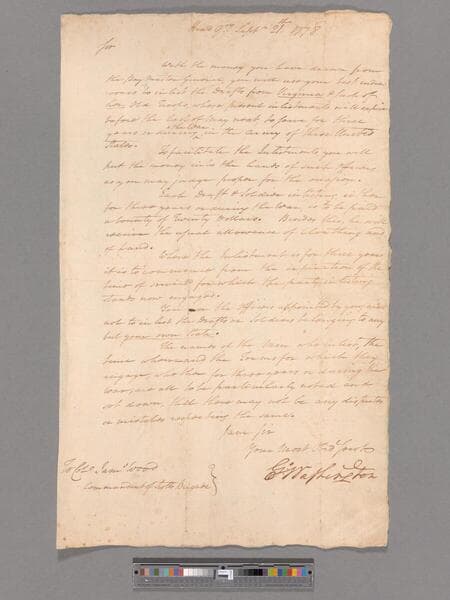 Head Qrs Septr 21th 1778
Sir
With the money you have drawn from
the Pay Master General, you will use your best endea-
vours to inlist the Drafts from Virginia & such of
her Old Troops, whose present inlistments will expire
before the last of May next to serve for three
years or during the War in the Army of these United
States.
To facilitate the Inlistments, you will
put the money into the hands of such Officers
as you may judge proper for the purpose.
Each Draft & Soldier inlisting to serve
for three years or during the War, is to be paid
a bounty of Twenty Dollars. Besides this, he will
receive the usual allowance of Cloathing and
of Land.
Where the Inlistment is for three years
it is to commence from the expiration of the
term of service for which the party inlisting
stands now engaged.
You or the Officers appointed by you, are
not to inlist the Drafts or Soldiers belonging to any
but your own State.
The names of the Men who inlist, the
time when and the Terms for which they
engage, whether for three years or during the
war, are all to be particularly noted and
set down, that there may not be any disputes
or mistakes respecting the same.
I am Sir
Your Most Obedt Servt
Go Washington
To Colo Saml Wood
Commandant of Scotts Brigade